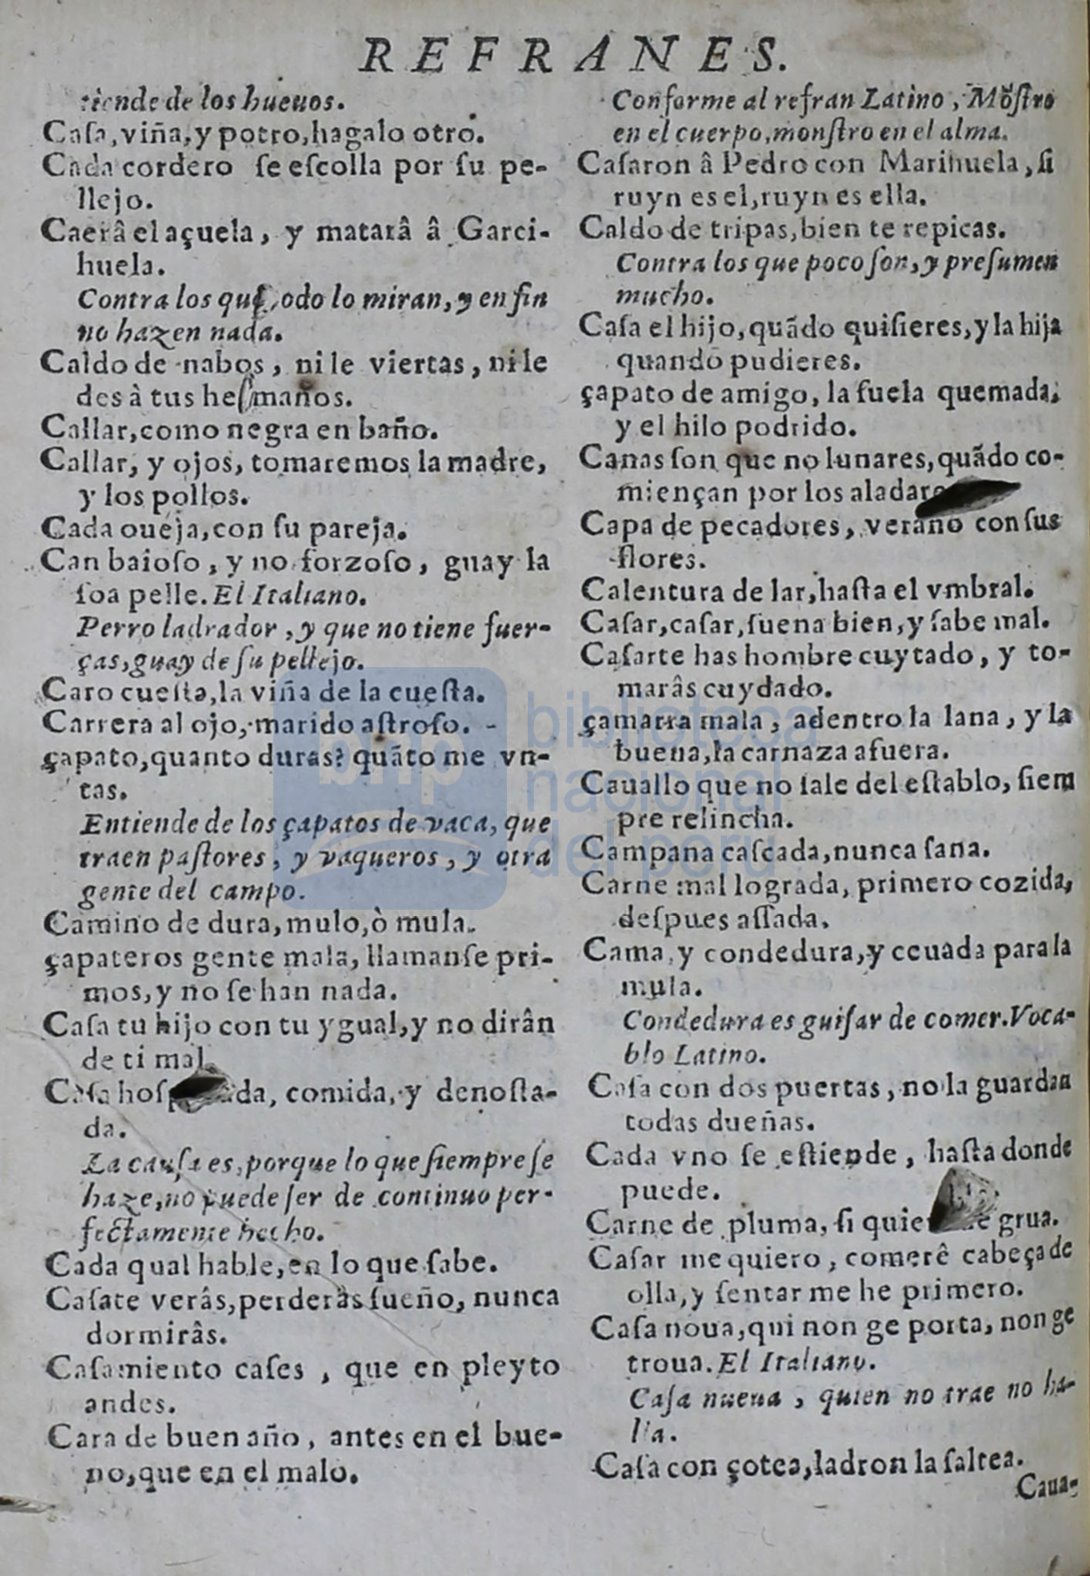 REFRANES.
tiende de los hueuos.
Caſa, viña, y potro, hagalo otro.
Cada cordero ſe eſcolla por ſu pe-
llejo.
Caerâ el açuela, y matarâ â Garci-
huela.
Contra los que odo lo miran, y en fin
no hazen nada.
Caldo de nabos, ni le viertas, ni le
des à tus hermanos.
Callar, como negra en baño.
Callar, y ojos, tomaremos la madre,
y los pollos.
Cada oueja, con ſu pareja.
Can baioſo, y no forzoſo, guay la
ſoa pelle. El Italiano.
Perro ladrador, y que no tiene fuer-
ças, guay de ſu pellejo.
Caro cueſta, la viña de la cueſta.
Carrera al ojo, marido aſtroſo.
çapato, quanto duras? quãto me vn-
tas.
Entiende de los çapatos de vaca, que
traen paſtores, y vaqueros, y otra
gente del campo.
Camino de dura, mulo, ò mula.
çapateros gente mala, llamanſe pri-
mos, y no ſe han nada.
Caſa tu hijo con tu ygual, y no dirân
de ti mal.
Caſa hoſp da, comida, y denoſta-
da.
La cauſa es, porque lo que ſiempre ſe
haze, no puede ſer de continuo per-
fectamente hecho.
Cada qual hable, en lo que ſabe.
Caſate verâs, perderàs ſueño, nunca
dormirâs.
Caſamiento caſes, que en pleyto
andes.
Cara de buen año, antes en el bue-
no, que en el malo.
Conforme al refran Latino, Mõſtro
en el cuerpo, monſtro en el alma.
Caſaron â Pedro con Marihuela, ſi
ruyn es el, ruyn es ella.
Caldo de tripas, bien te repicas.
Contra los que poco ſon, y preſumen
mucho.
Caſa el hijo, quãdo quiſieres, y la hija
quando pudieres.
çapato de amigo, la ſuela quemada,
y el hilo podrido.
Canas ſon que no lunares, quãdo co-
miençan por los aladaro
Capa de pecadores, verano con ſus
flores.
Calentura de lar, haſta el vmbral.
Caſar, caſar, ſuena bien, y ſabe mal.
Caſarte has hombre cuytado, y to-
marâs cuydado.
çamarra mala, adentro la lana, y la
buena, la carnaza afuera.
Cauallo que no ſale del eſtablo, ſiem
pre relincha.
Campana caſcada, nunca ſana.
Carne mal lograda, primero cozida,
deſpues aſſada.
Cama, y condedura, y ceuada para la
mula.
Condedura es guiſar de comer. Voca-
blo Latino.
Caſa con dos puertas, no la guardan
todas dueñas.
Cada vno ſe eſtiende, haſta donde
puede.
Carne de pluma, ſi quie de grua.
Caſar me quiero, comerê cabeça de
olla, y ſentar me he primero.
Caſa noua, qui non ge porta, non ge
troua. El Italiano.
Caſa nueua, quien no trae no ha-
lla.
Caſa con çotea, ladron la ſaltea.
Caua-
bnp
biblioteca
nacional
del perú